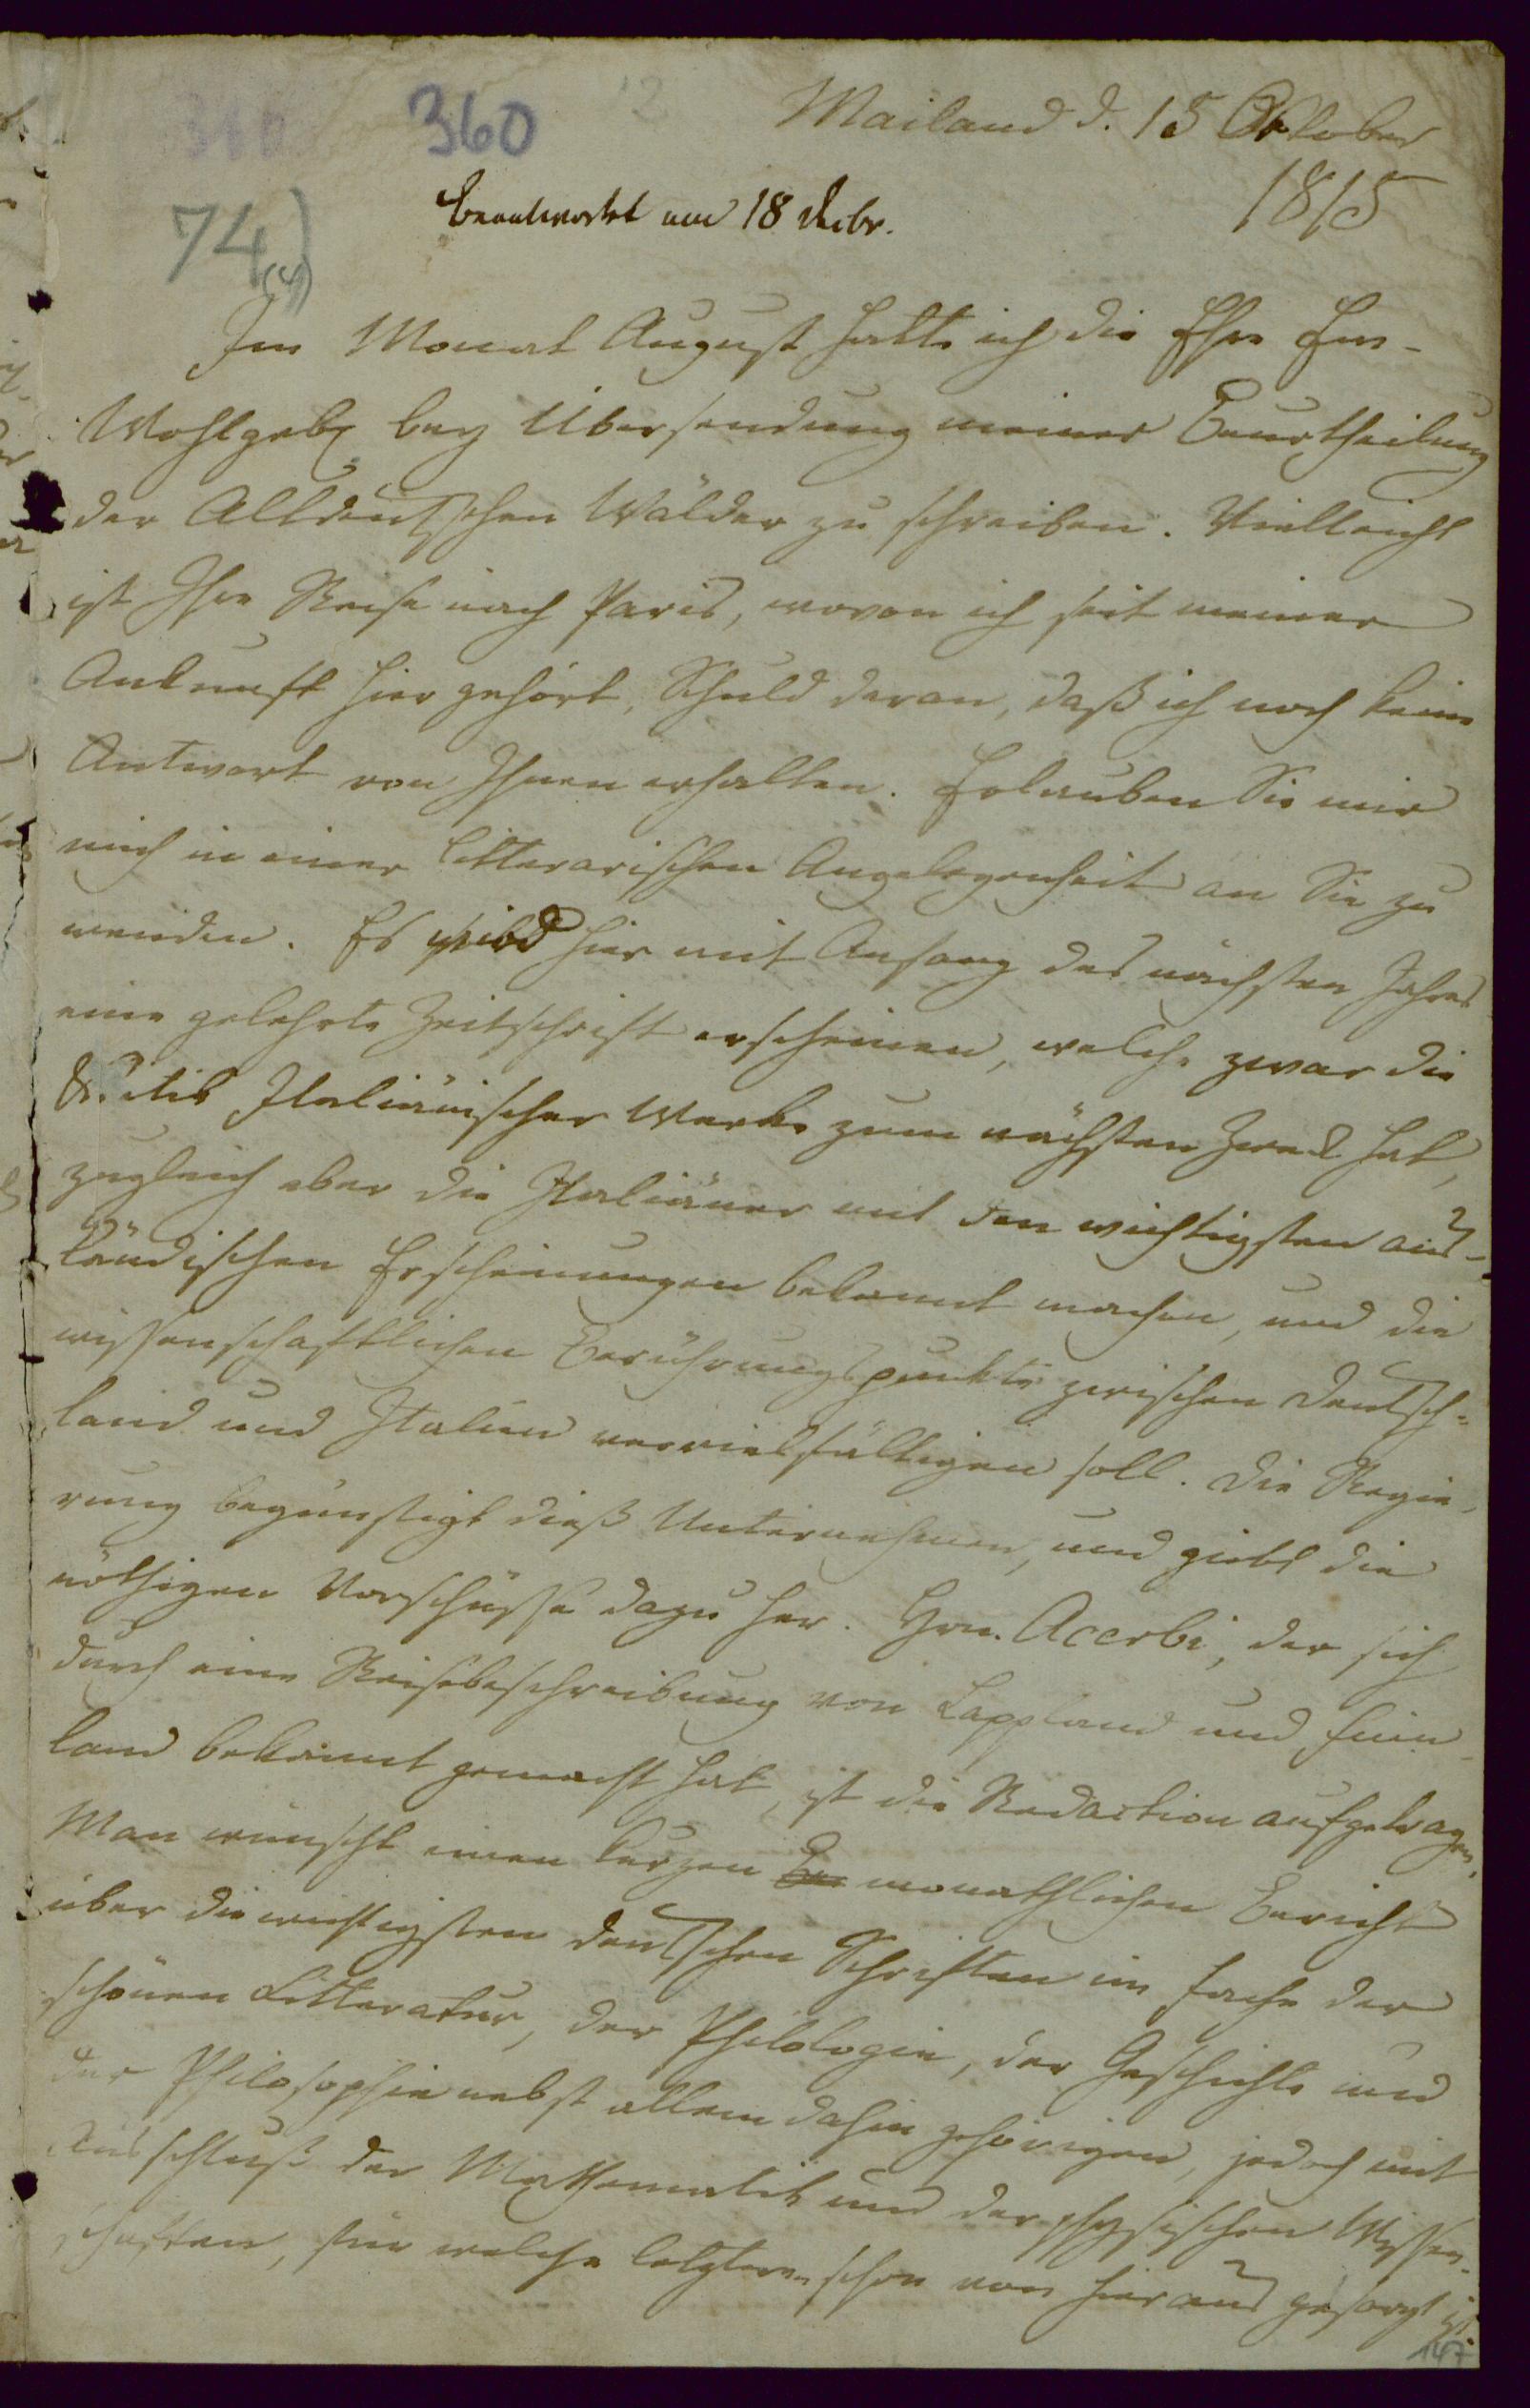 360 360 12 Mailand d. 15 Oktober
1815
Beantwortet am 18 Decbr.
74(4)
Im Monat August hatte ich die Ehre Ew-
Wohlgeb. bey Übersendung meiner Beurtheilung
der Altdeutschen Wälder zu schreiben. Vielleicht
ist Ihre Reise nach Paris, wovon ich seit meiner
Ankunft hier gehört, Schuld daran, daß ich noch keine
Antwort von Ihnen erhalten. Erlauben Sie mir
mich in einer litterarischen Angelegenheit an Sie zu
wenden. Es wird hier mit Anfang des nächsten Jahres
eine gelehrte Zeitschrift erscheinen, welche zwar die
Kritik Italiänischer Werke zum nächsten Zweck hat,
zugleich aber die Italiäner mit den wichtigsten aus-
ländischen Erscheinungen bekannt machen, und die
wissenschaftlichen Berührungspunkte zwischen Deutsch-
land und Italien vervielfältigen soll. Die Regie-
rung begünstigt dieß Unternehmen, und giebt die
nöthigen Vorschüsse dazu her. Hrn. Acerbi, der sich
durch eine Reisebeschreibung von Lappland und Finn-
land bekannt gemacht hat, ist die Redaction aufgetragen.
Man wünscht einen kurzen monathlichen Bericht
über die wichtigsten deutschen Schriften im Fache der
schönen Litteratur, der Philologie, der Geschichte und
der Philosophie nebst allem dahin gehörigen, jedoch mit
Ausschluß der Mathematik und der physischen Wissen-
schaften, für welche letztern schon von hieraus gesorgt ist.
147